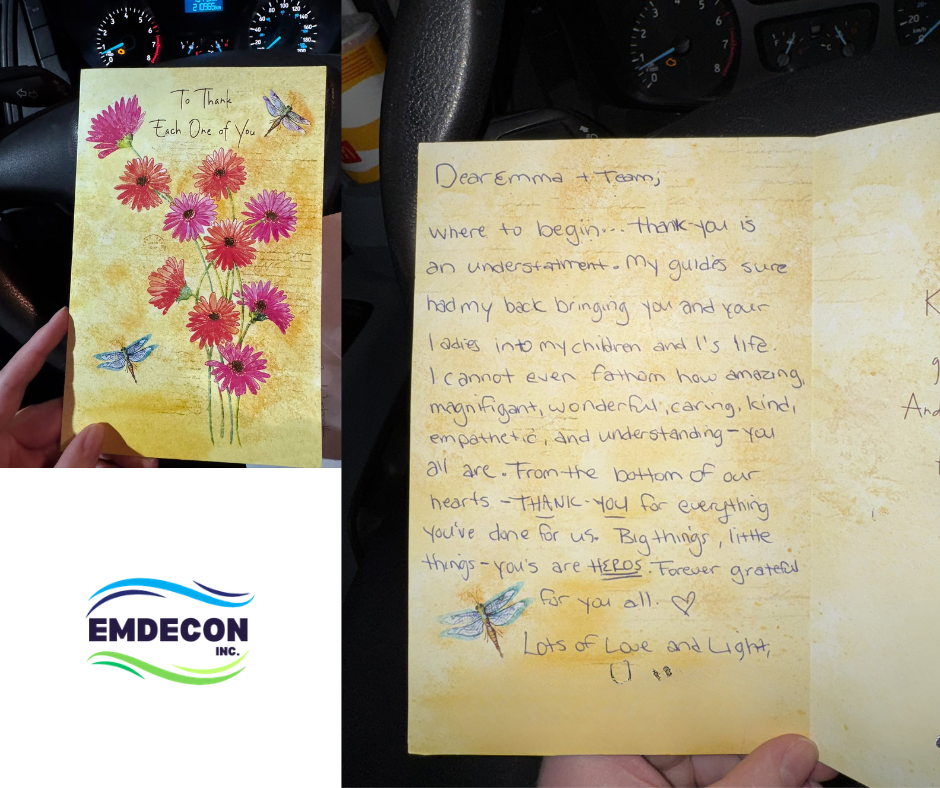 To Thank
Each One of You
EMDECON
INC.
Dear Emma + Team,
where to begin... thank-you is
an understatment. My guides sure
had my back bringing you and your
ladies into my children and I's life.
I cannot even fathom how amazing,
magnifigant, wonderful, caring, kind,
empathetic, and understanding - you
all are. From the bottom of our
hearts - THANK-YOU for everything
you've done for us. Big things, little
things - you's are HEROS. Forever grateful
for you all. ♡
Lots of Love and Light,
K
g
And